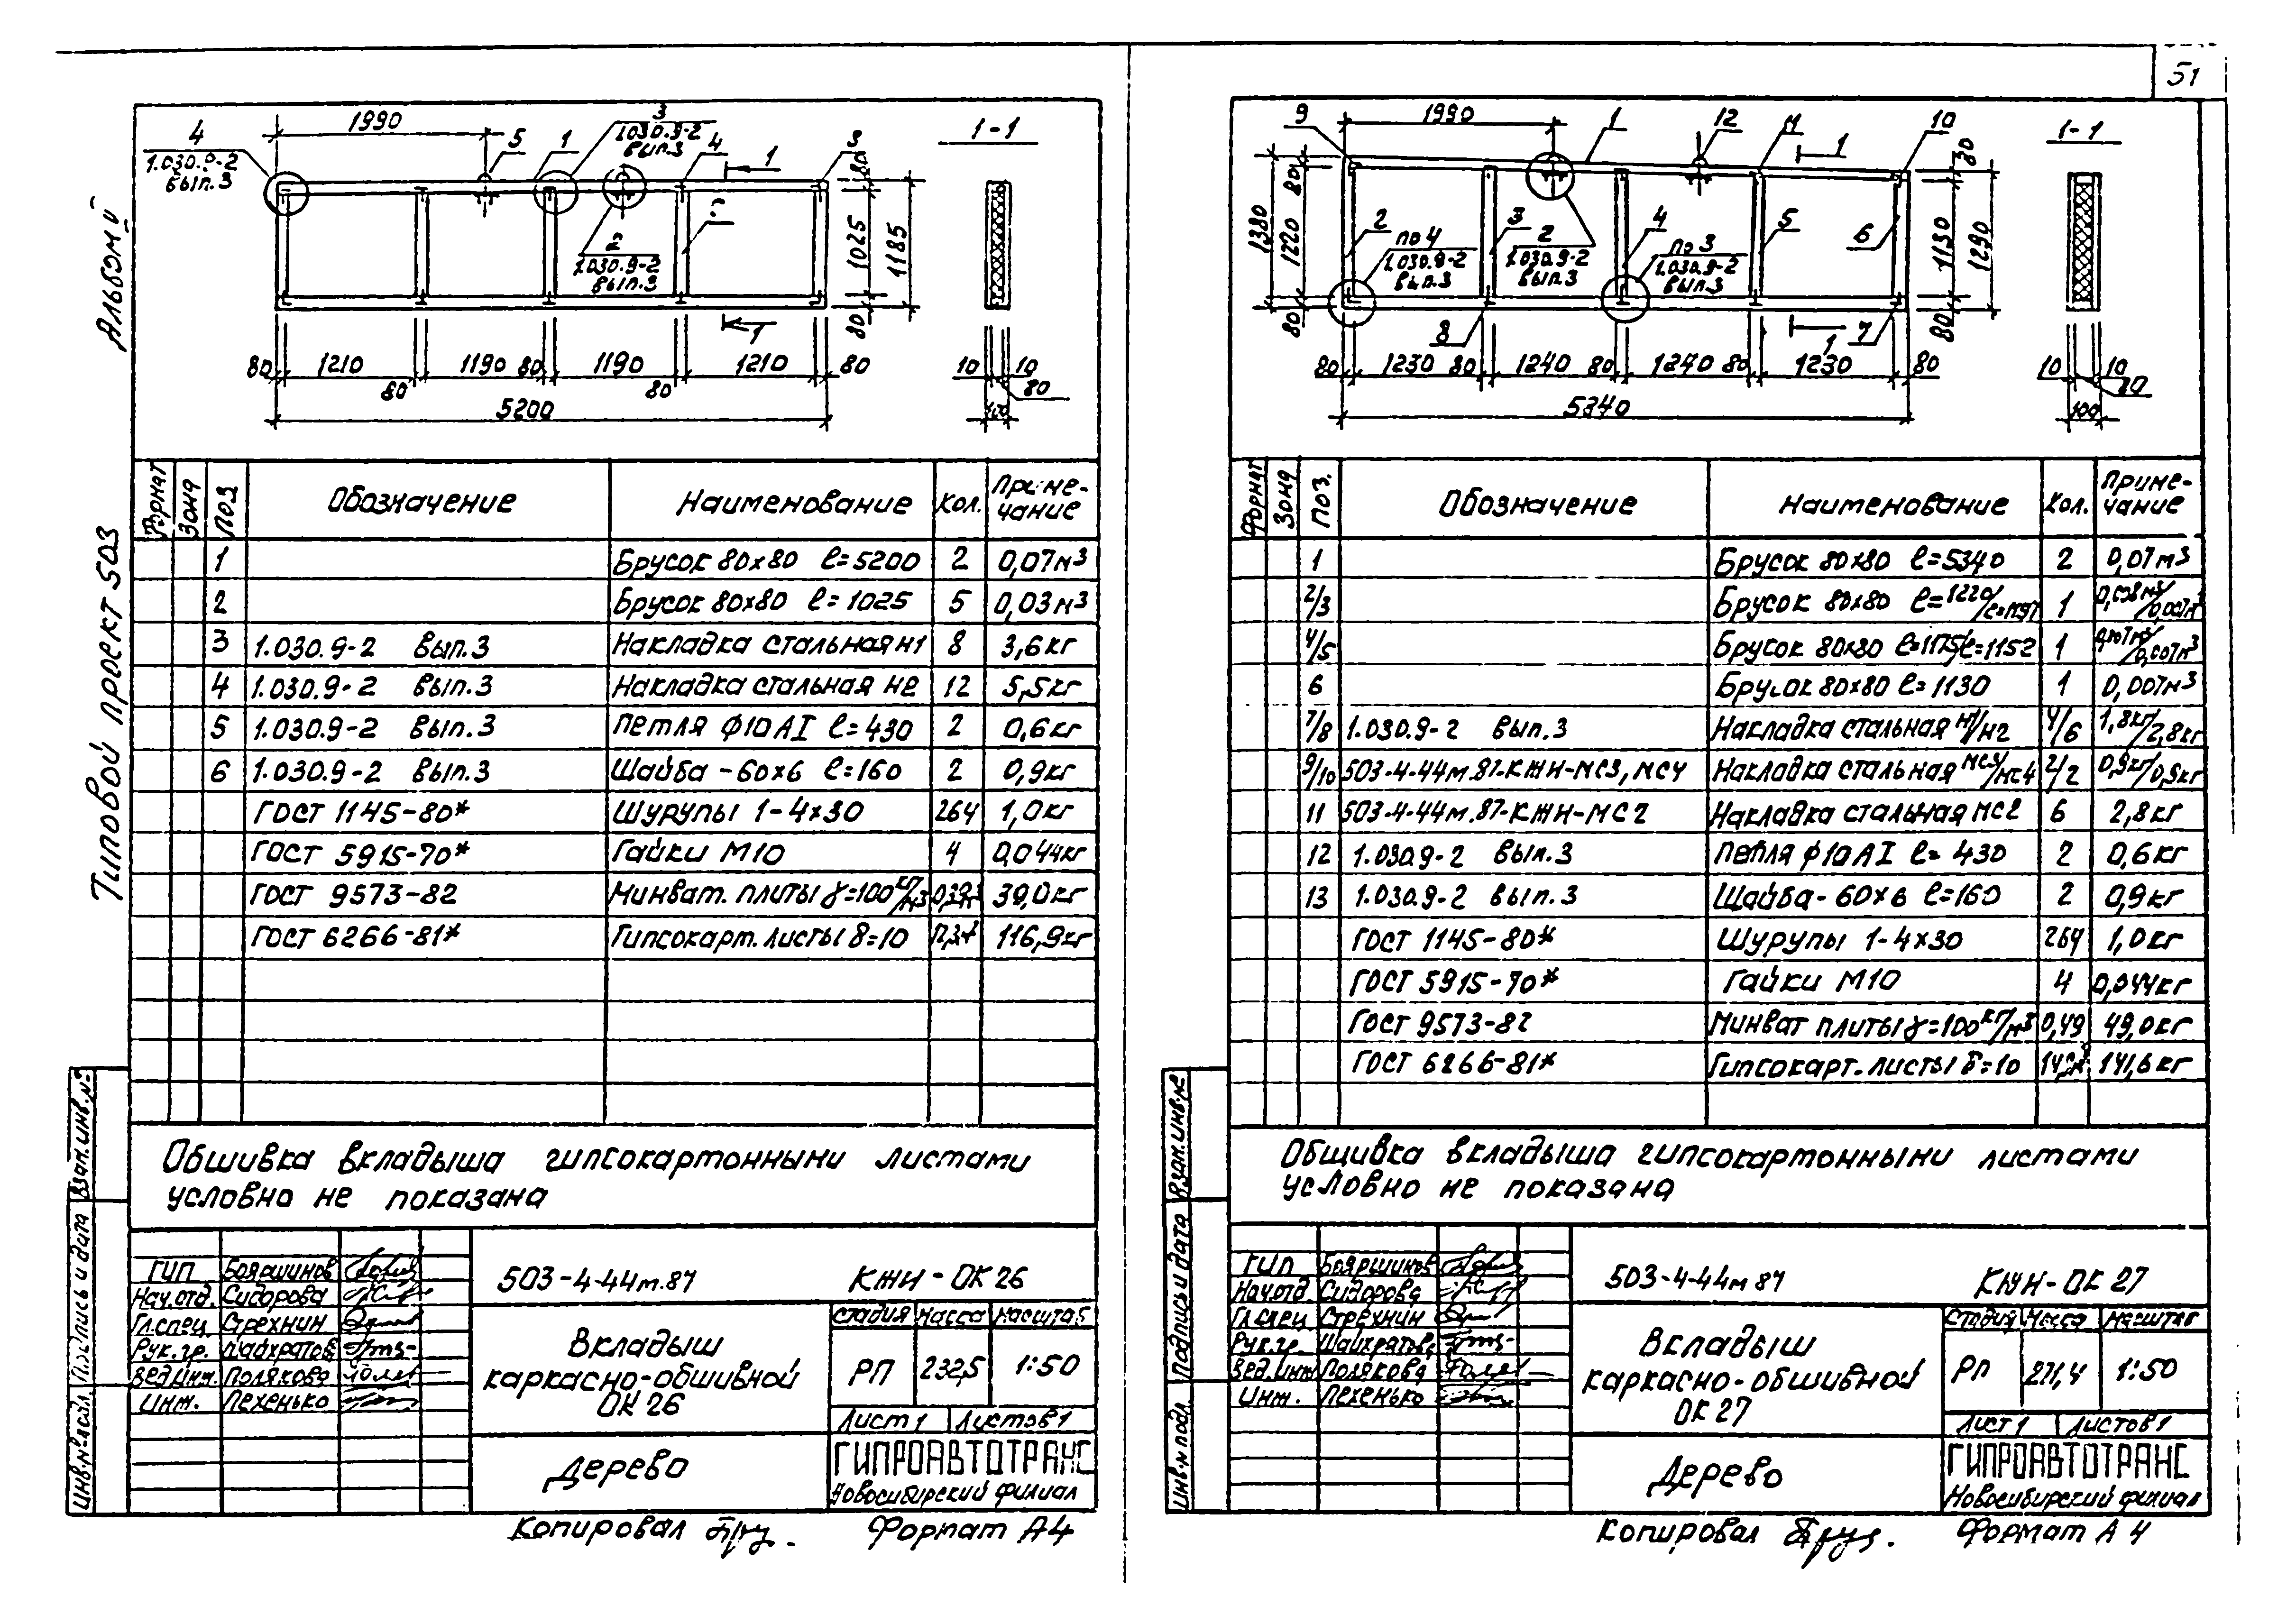 51
Альбом
Типовой проект 503
4
1.030.9-2
вып.3
1990
5
1
3
1.030.9-2
вып.3
4
1
3
1-1
2
1.030.9-2
вып.3
80
1025
1185
80
1
80 1210 80 1190 80 1190 80 1210 80
5200
10 10
80
Формат Зона Поз Обозначение Наименование Кол. Приме-
чание
1 Брусок 80х80 ℓ=5200 2 0,07м³
2 Брусок 80х80 ℓ=1025 5 0,03м³
3 1.030.9-2 вып.3 Накладка стальная н1 8 3,6кг
4 1.030.9-2 вып.3 Накладка стальная н2 12 5,5кг
5 1.030.9-2 вып.3 Петля ф10АI ℓ=430 2 0,6кг
6 1.030.9-2 вып.3 Шайба -60х6 ℓ=160 2 0,9кг
ГОСТ 1145-80* Шурупы 1-4х30 264 1,0кг
ГОСТ 5915-70* Гайки М10 4 0,044кг
ГОСТ 9573-82 Минват. плиты γ=100кг/м3 39,0кг
ГОСТ 6266-81* Гипсокарт. листы δ=10 116,9кг
Обшивка вкладыша гипсокартонными листами
условно не показана
Взам.инв.№
Подпись и дата
Инв.№подл.
ГИП Бояршинов
Нач.отд. Сидорова
Гл.спец. Стрехнин
Рук.гр. Шайхратов
Вед.инж. Полякова
Инж. Пехенько
503-4-44м.87 КЖИ-ОК 26
Вкладыш
каркасно-обшивной
ОК 26
Стадия Масса Масштаб
РП 232,5 1:50
Лист 1 Листов 1
Дерево
ГИПРОАВТОТРАНС
Новосибирский филиал
Копировал Формат А4
9
1990
1
12
11
1
10
1-1
80
1380
1220
80
2
по 4
1.030.9-2
вып.3
3
2
1.030.9-2
вып.3
4
по 3
1.030.9-2
вып.3
5
6
80
1130
1290
80
8
1
7
80 1230 80 1240 80 1240 80 1230 80
5340
10 10
80
100
Формат Зона Поз. Обозначение Наименование Кол. Приме-
чание
1 Брусок 80х80 ℓ=5340 2 0,07м3
2/3 Брусок 80х80 ℓ=1220/ℓ=1197 1
4/5 Брусок 80х80 ℓ=1175/ℓ=1152 1 0,007м3/0,007м3
6 Брусок 80х80 ℓ=1130 1 0,007м3
7/8 1.030.9-2 вып.3 Накладка стальная н1/н2 4/6 1,8кг/2,8кг
9/10 503-4-44м.87-КЖИ-МС3, МС4 Накладка стальная мс3/мс4 2/2 0,9кг/0,9кг
11 503-4-44м.87-КЖИ-МС2 Накладка стальная мс2 6 2,8кг
12 1.030.9-2 вып.3 Петля ф10АI ℓ=430 2 0,6кг
13 1.030.9-2 вып.3 Шайба-60х6 ℓ=160 2 0,9кг
ГОСТ 1145-80* Шурупы 1-4х30 264 1,0кг
ГОСТ 5915-70* Гайки М10 4 0,044кг
ГОСТ 9573-82 Минват плиты γ=100кг/м3 0,49 49,0кг
ГОСТ 6266-81* Гипсокарт. листы δ=10 141,6кг
Обшивка вкладыша гипсокартонными листами
условно не показана
Взам.инв.№
Подпись и дата
Инв.№ подл.
ГИП Бояршинов
Нач.отд. Сидорова
Гл.спец Стрехнин
Рук.гр. Шайхратов
Вед.инж Полякова
Инж. Пехенько
503-4-44м 87 КЖИ-ОК 27
Вкладыш
каркасно-обшивной
ОК 27
Стадия Масса Масштаб
РП 271,4 1:50
Лист 1 Листов 1
Дерево
ГИПРОАВТОТРАНС
Новосибирский филиал
Копировал Формат А4